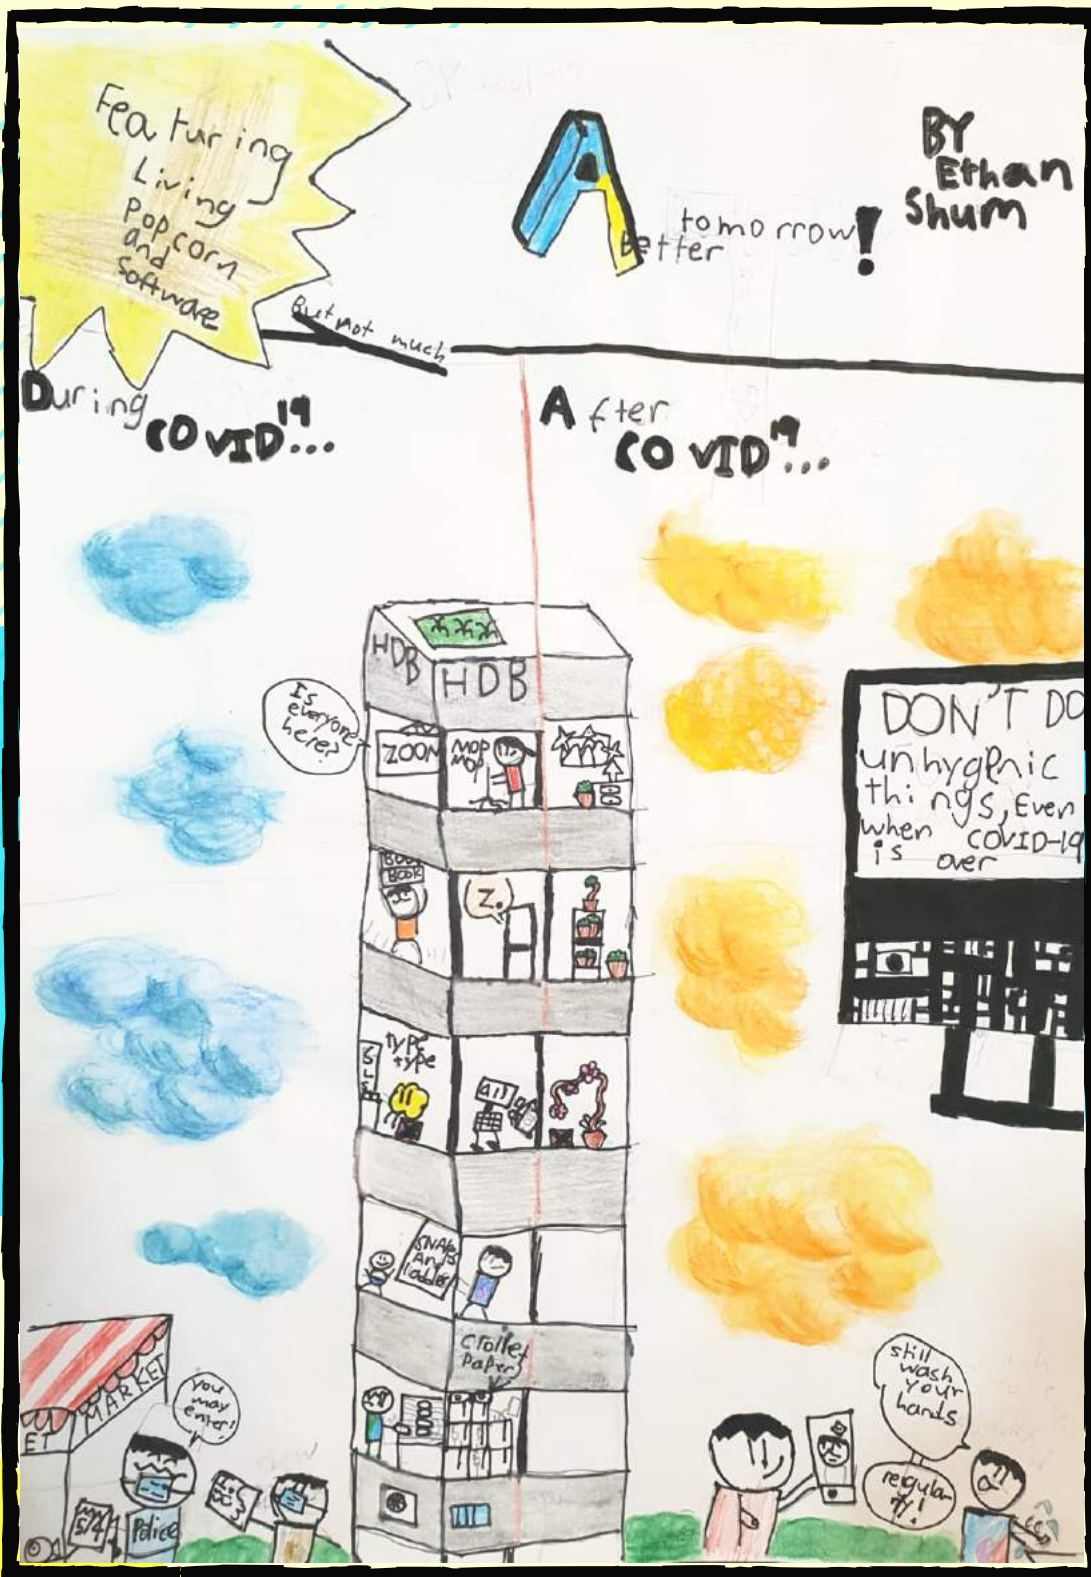 Featuring
Living
Popcorn
and
Software
But not much
A
Better
tomorrow!
BY
Ethan
Shum
During
COVID19...
After
COVID19...
HDB
HDB
Is
everyone
here?
ZOOM
MOP
MOP
BOOK
BOOK
Z.
SLS
type
type
Snake
And
ladder
toilet
paper
DON'T DO
unhygenic
things, Even
when COVID-19
is over
MARKET
ET
you
may
enter!
Police
still
wash
your
hands
regula-
rly!